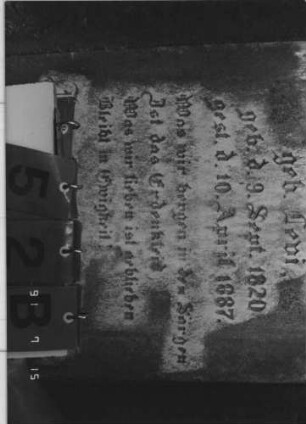 geb. Levi.
geb. d. 9. Sept. 1820
gest. d. 10. April 1887.
Was wir bergen in den Särgen
Ist das Erdenkleid
Was wir lieben ist geblieben
Bleibt in Ewigkeit.
5 2 B
9 7 15